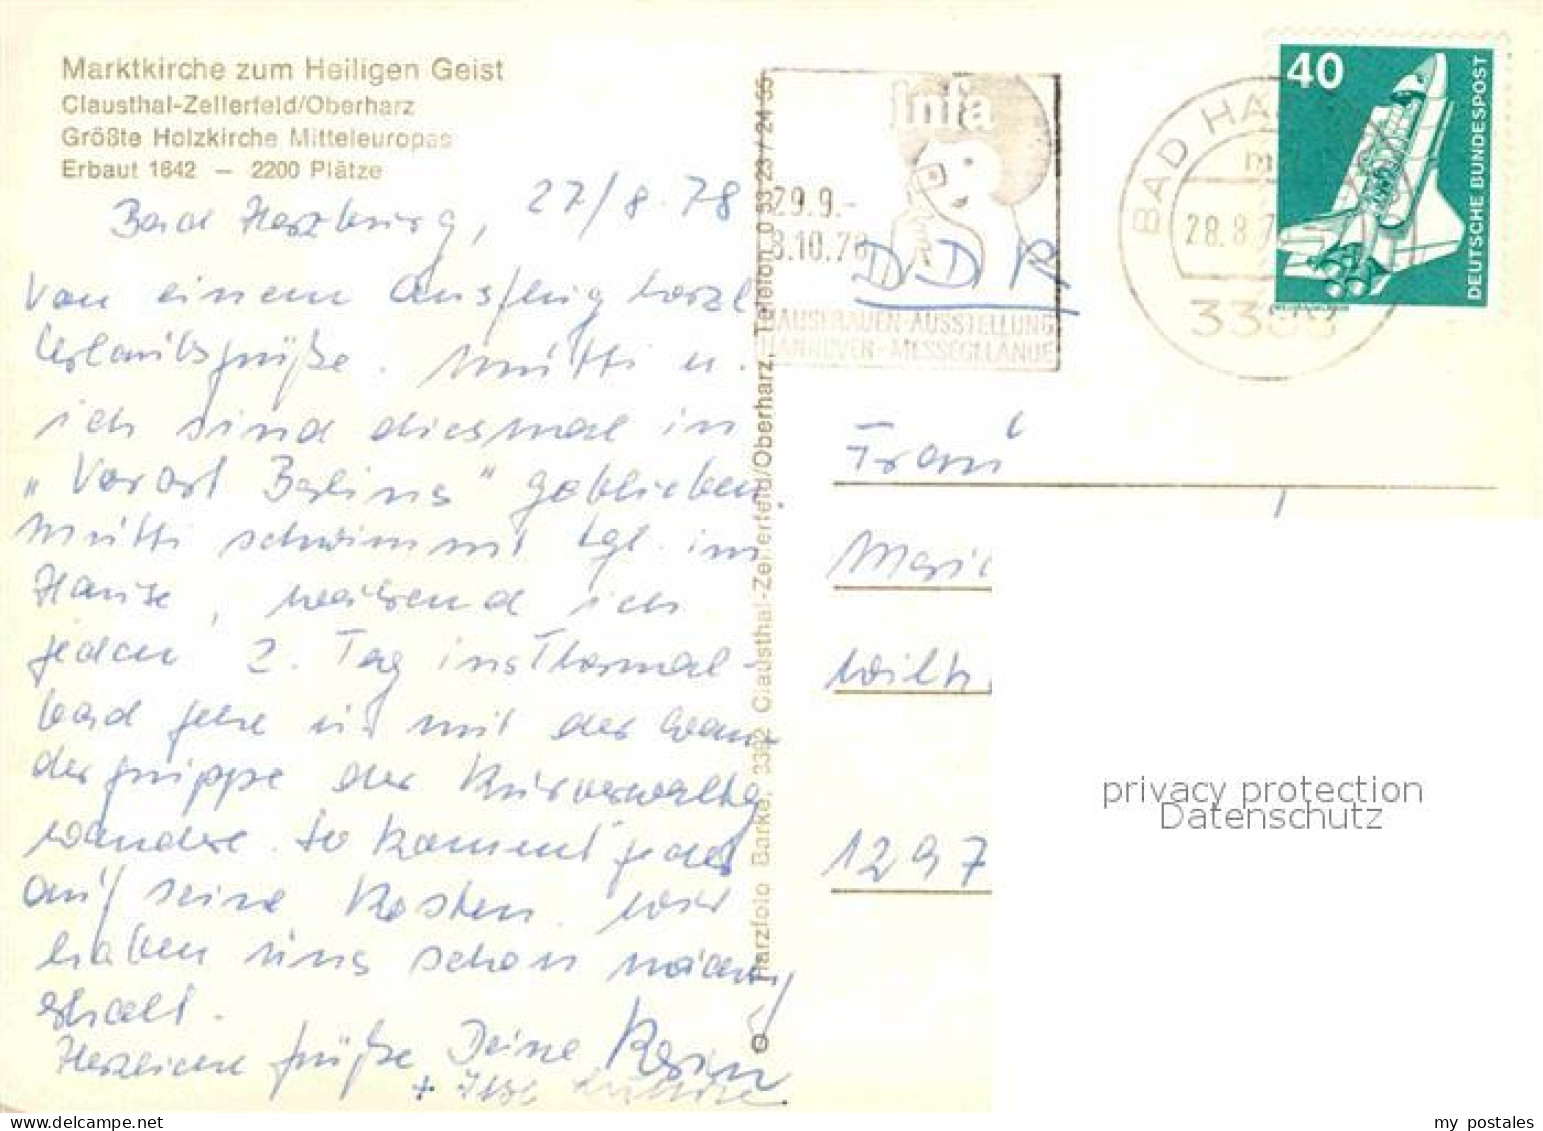 Marktkirche zum Heiligen Geist
Clausthal-Zellerfeld/Oberharz
Größte Holzkirche Mitteleuropas
Erbaut 1642 — 2200 Plätze
Bad Harzburg, 27/8.78
Von einem Ausflug herzl
Urlaubsgrüße. Mutti u.
ich sind diesmal in
„Vorort Berlins" geblieben.
Mutti schwimmt tgl. im
Hause, während ich
jeden 2. Tag ins Thermal-
bad gehe u. mit der Wan-
dergruppe der Kurverwaltg
wandere. So kommt jeder
auf seine Kosten. Wir
haben uns schon
erholt.
Herzliche Grüße Deine
+ Ihre
Harzfoto Barke, 3392 Clausthal-Zellerfeld/Oberharz, Telefon 0 53 23 / 24 55
Infa
29.9.-
8.10.78
HAUSFRAUEN-AUSSTELLUNG
HANNOVER-MESSEGELÄNDE
DDR
BAD HA
28.8.7
338
40
DEUTSCHE BUNDESPOST
Frau
Mari
Wilh
1297
privacy protection
Datenschutz
my postales